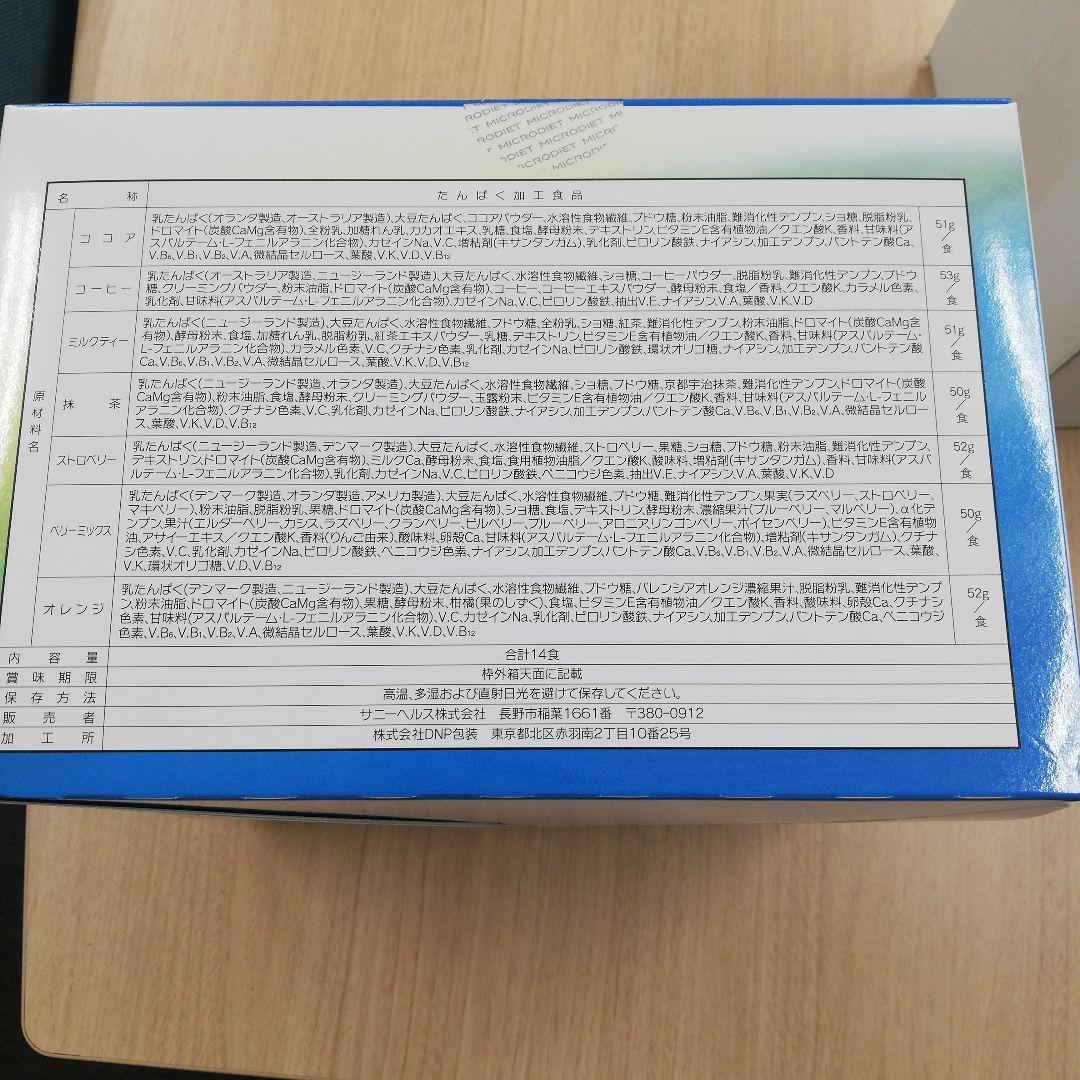 RODIET MICRODIET MICRODI
RODIET MICRODIET MICRO
T MICRODIET MI
ODIET MICRODIET
MICRODI
名称 たんぱく加工食品
原材料名
ココア
乳たんぱく(オランダ製造、オーストラリア製造)、大豆たんぱく、ココアパウダー、水溶性食物繊維、ブドウ糖、粉末油脂、難消化性デンプン、ショ糖、脱脂粉乳、
ドロマイト(炭酸CaMg含有物)、全粉乳、加糖れん乳、カカオエキス、乳糖、食塩、酵母粉末、デキストリン、ビタミンE含有植物油/クエン酸K、香料、甘味料(ア
スパルテーム・L-フェニルアラニン化合物)、カゼインNa、V.C、増粘剤(キサンタンガム)、乳化剤、ピロリン酸鉄、ナイアシン、加工デンプン、パントテン酸Ca、
V.B₆、V.B₁、V.B₂、V.A、微結晶セルロース、葉酸、V.K、V.D、V.B₁₂
51g/食
コーヒー
乳たんぱく(オーストラリア製造、ニュージーランド製造)、大豆たんぱく、水溶性食物繊維、ショ糖、コーヒーパウダー、脱脂粉乳、難消化性デンプン、ブドウ
糖、クリーミングパウダー、粉末油脂、ドロマイト(炭酸CaMg含有物)、コーヒー、コーヒーエキスパウダー、酵母粉末、食塩/香料、クエン酸K、カラメル色素、
乳化剤、甘味料(アスパルテーム・L-フェニルアラニン化合物)、カゼインNa、V.C、ピロリン酸鉄、抽出V.E、ナイアシン、V.A、葉酸、V.K、V.D
53g/食
ミルクティー
乳たんぱく(ニュージーランド製造)、大豆たんぱく、水溶性食物繊維、ブドウ糖、全粉乳、ショ糖、紅茶、難消化性デンプン、粉末油脂、ドロマイト(炭酸CaMg含
有物)、酵母粉末、食塩、加糖れん乳、脱脂粉乳、紅茶エキスパウダー、乳糖、デキストリン、ビタミンE含有植物油/クエン酸K、香料、甘味料(アスパルテーム・
L-フェニルアラニン化合物)、カラメル色素、V.C、クチナシ色素、乳化剤、カゼインNa、ピロリン酸鉄、環状オリゴ糖、ナイアシン、加工デンプン、パントテン酸
Ca、V.B₆、V.B₁、V.B₂、V.A、微結晶セルロース、葉酸、V.K、V.D、V.B₁₂
51g/食
抹茶
乳たんぱく(ニュージーランド製造、オランダ製造)、大豆たんぱく、水溶性食物繊維、ショ糖、ブドウ糖、京都宇治抹茶、難消化性デンプン、ドロマイト(炭酸
CaMg含有物)、粉末油脂、食塩、酵母粉末、クリーミングパウダー、玉露粉末、ビタミンE含有植物油/クエン酸K、香料、甘味料(アスパルテーム・L-フェニル
アラニン化合物)、クチナシ色素、V.C、乳化剤、カゼインNa、ピロリン酸鉄、ナイアシン、加工デンプン、パントテン酸Ca、V.B₆、V.B₁、V.B₂、V.A、微結晶セルロー
ス、葉酸、V.K、V.D、V.B₁₂
50g/食
ストロベリー
乳たんぱく(ニュージーランド製造、デンマーク製造)、大豆たんぱく、水溶性食物繊維、ストロベリー、果糖、ショ糖、ブドウ糖、粉末油脂、難消化性デンプン、
デキストリン、ドロマイト(炭酸CaMg含有物)、ミルクCa、酵母粉末、食塩、食用植物油脂/クエン酸K、酸味料、増粘剤(キサンタンガム)、香料、甘味料(アスパ
ルテーム・L-フェニルアラニン化合物)、乳化剤、カゼインNa、V.C、ピロリン酸鉄、ベニコウジ色素、抽出V.E、ナイアシン、V.A、葉酸、V.K、V.D
52g/食
ベリーミックス
乳たんぱく(デンマーク製造、オランダ製造、アメリカ製造)、大豆たんぱく、水溶性食物繊維、ブドウ糖、難消化性デンプン、果実(ラズベリー、ストロベリー、
マキベリー)、粉末油脂、脱脂粉乳、果糖、ドロマイト(炭酸CaMg含有物)、ショ糖、食塩、デキストリン、酵母粉末、濃縮果汁(ブルーベリー、マルベリー)、α化デ
ンプン、果汁(エルダーベリー、カシス、ラズベリー、クランベリー、ビルベリー、ブルーベリー、アロニア、リンゴンベリー、ボイセンベリー)、ビタミンE含有植物
油、アサイーエキス/クエン酸K、香料(りんご由来)、酸味料、卵殻Ca、甘味料(アスパルテーム・L-フェニルアラニン化合物)、増粘剤(キサンタンガム)、クチナ
シ色素、V.C、乳化剤、カゼインNa、ピロリン酸鉄、ベニコウジ色素、ナイアシン、加工デンプン、パントテン酸Ca、V.B₆、V.B₁、V.B₂、V.A、微結晶セルロース、葉酸、
V.K、環状オリゴ糖、V.D、V.B₁₂
50g/食
オレンジ
乳たんぱく(デンマーク製造、ニュージーランド製造)、大豆たんぱく、水溶性食物繊維、ブドウ糖、バレンシアオレンジ濃縮果汁、脱脂粉乳、難消化性デンプ
ン、粉末油脂、ドロマイト(炭酸CaMg含有物)、果糖、酵母粉末、柑橘(果のしずく)、食塩、ビタミンE含有植物油/クエン酸K、香料、酸味料、卵殻Ca、クチナシ
色素、甘味料(アスパルテーム・L-フェニルアラニン化合物)、V.C、カゼインNa、乳化剤、ピロリン酸鉄、ナイアシン、加工デンプン、パントテン酸Ca、ベニコウジ
色素、V.B₆、V.B₁、V.B₂、V.A、微結晶セルロース、葉酸、V.K、V.D、V.B₁₂
52g/食
内容量 合計14食
賞味期限 枠外箱天面に記載
保存方法 高温、多湿および直射日光を避けて保存してください。
販売者 サニーヘルス株式会社 長野市稲葉1661番 〒380-0912
加工所 株式会社DNP包装 東京都北区赤羽南2丁目10番25号